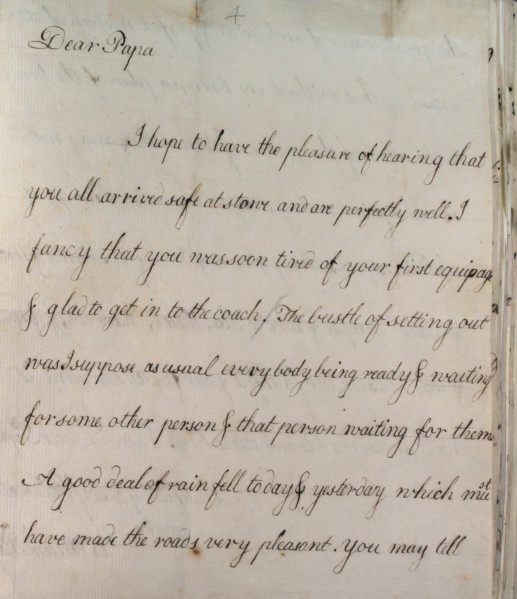 4
Dear Papa
I hope to have the pleasure of hearing that
you all arrived safe at stowe and are perfectly well. I
fancy that you was soon tired of your first equipag
& glad to get in to the coach. The bustle of setting out
was I suppose as usual every body being ready & waiting
for some other person & that person waiting for them
A good deal of rain fell today & yesterday which must
have made the roads very pleasant. you may tell